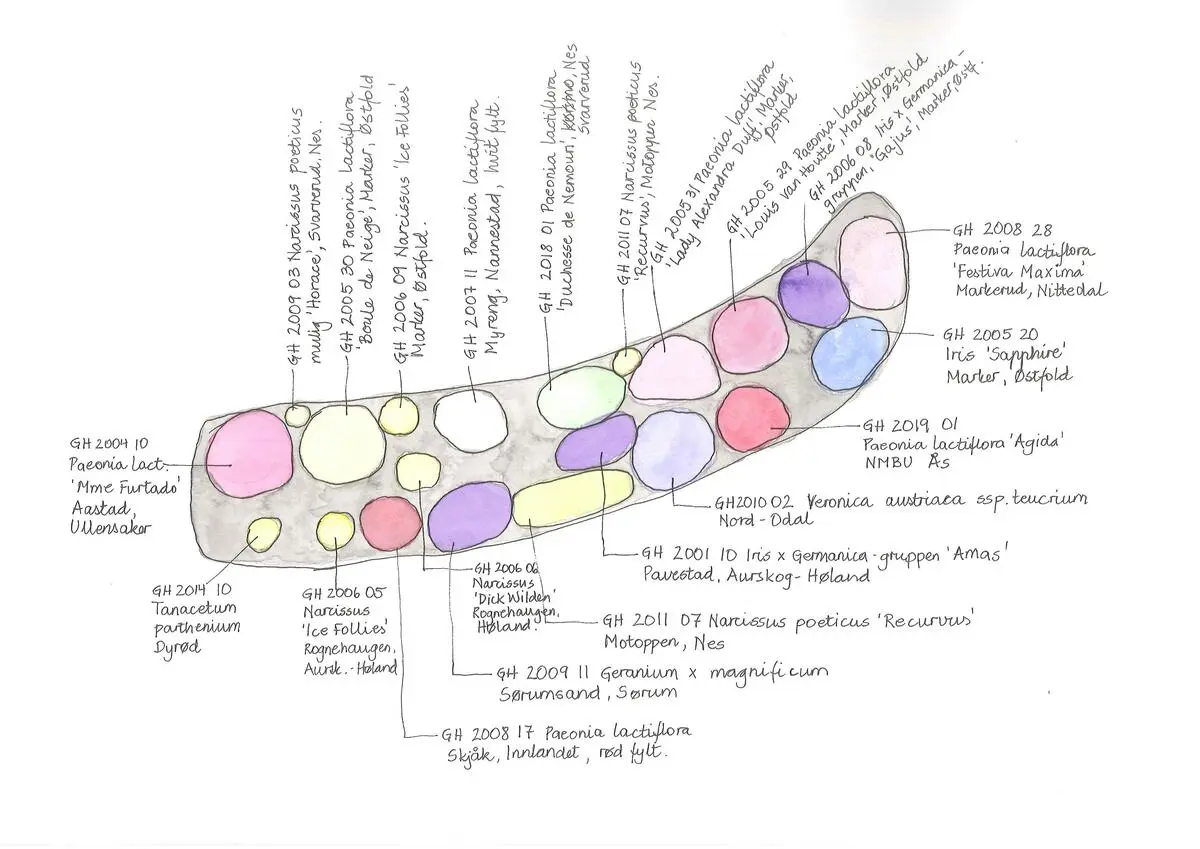 GH 2009 03 Narcissus poeticus
mulig 'Horace', Svarverud, Nes.
GH 2005 30 Paeonia lactiflora
'Boule de Neige', Marker, Østfold
GH 2006 09 Narcissus 'Ice Follies'
Marker, Østfold.
GH 2007 11 Paeonia lactiflora
Myreng, Nannestad, hvit fylt.
GH 2018 01 Paeonia lactiflora
'Duchesse de Nemour', Nes
Svarverud
GH 2011 07 Narcissus poeticus
'Recurvus', Motoppen Nes.
GH 2005 31 Paeonia lactiflora
'Lady Alexandra Duff', Marker,
Østfold
GH 2005 29 Paeonia lactiflora
'Louis van Houtte', Marker, Østfold
GH 2006 08 Iris x Germanica-
gruppen, 'Gajus', Marker, Østf.
GH 2008 28
Paeonia lactiflora
'Festiva Maxima'
Markerud, Nittedal
GH 2005 20
Iris 'Sapphire'
Marker, Østfold
GH 2019 01
Paeonia lactiflora 'Agida'
NMBU Ås
GH 2010 02 Veronica austriaca ssp. teucrium
Nord-Odal
GH 2001 10 Iris x Germanica-gruppen 'Amas'
Pavestad, Aurskog-Høland
GH 2011 07 Narcissus poeticus 'Recurvus'
Motoppen, Nes
GH 2009 11 Geranium x magnificum
Sørumsand, Sørum
GH 2008 17 Paeonia lactiflora
Skjåk, Innlandet, rød fylt.
GH 2006 06
Narcissus
'Dick Wilden'
Rognehaugen,
Høland.
GH 2006 05
Narcissus
'Ice Follies'
Rognehaugen,
Aursk.-Høland
GH 2014 10
Tanacetum
parthenium
Dyrød
GH 2004 10
Paeonia Lact.
'Mme Furtado'
Aastad,
Ullensaker